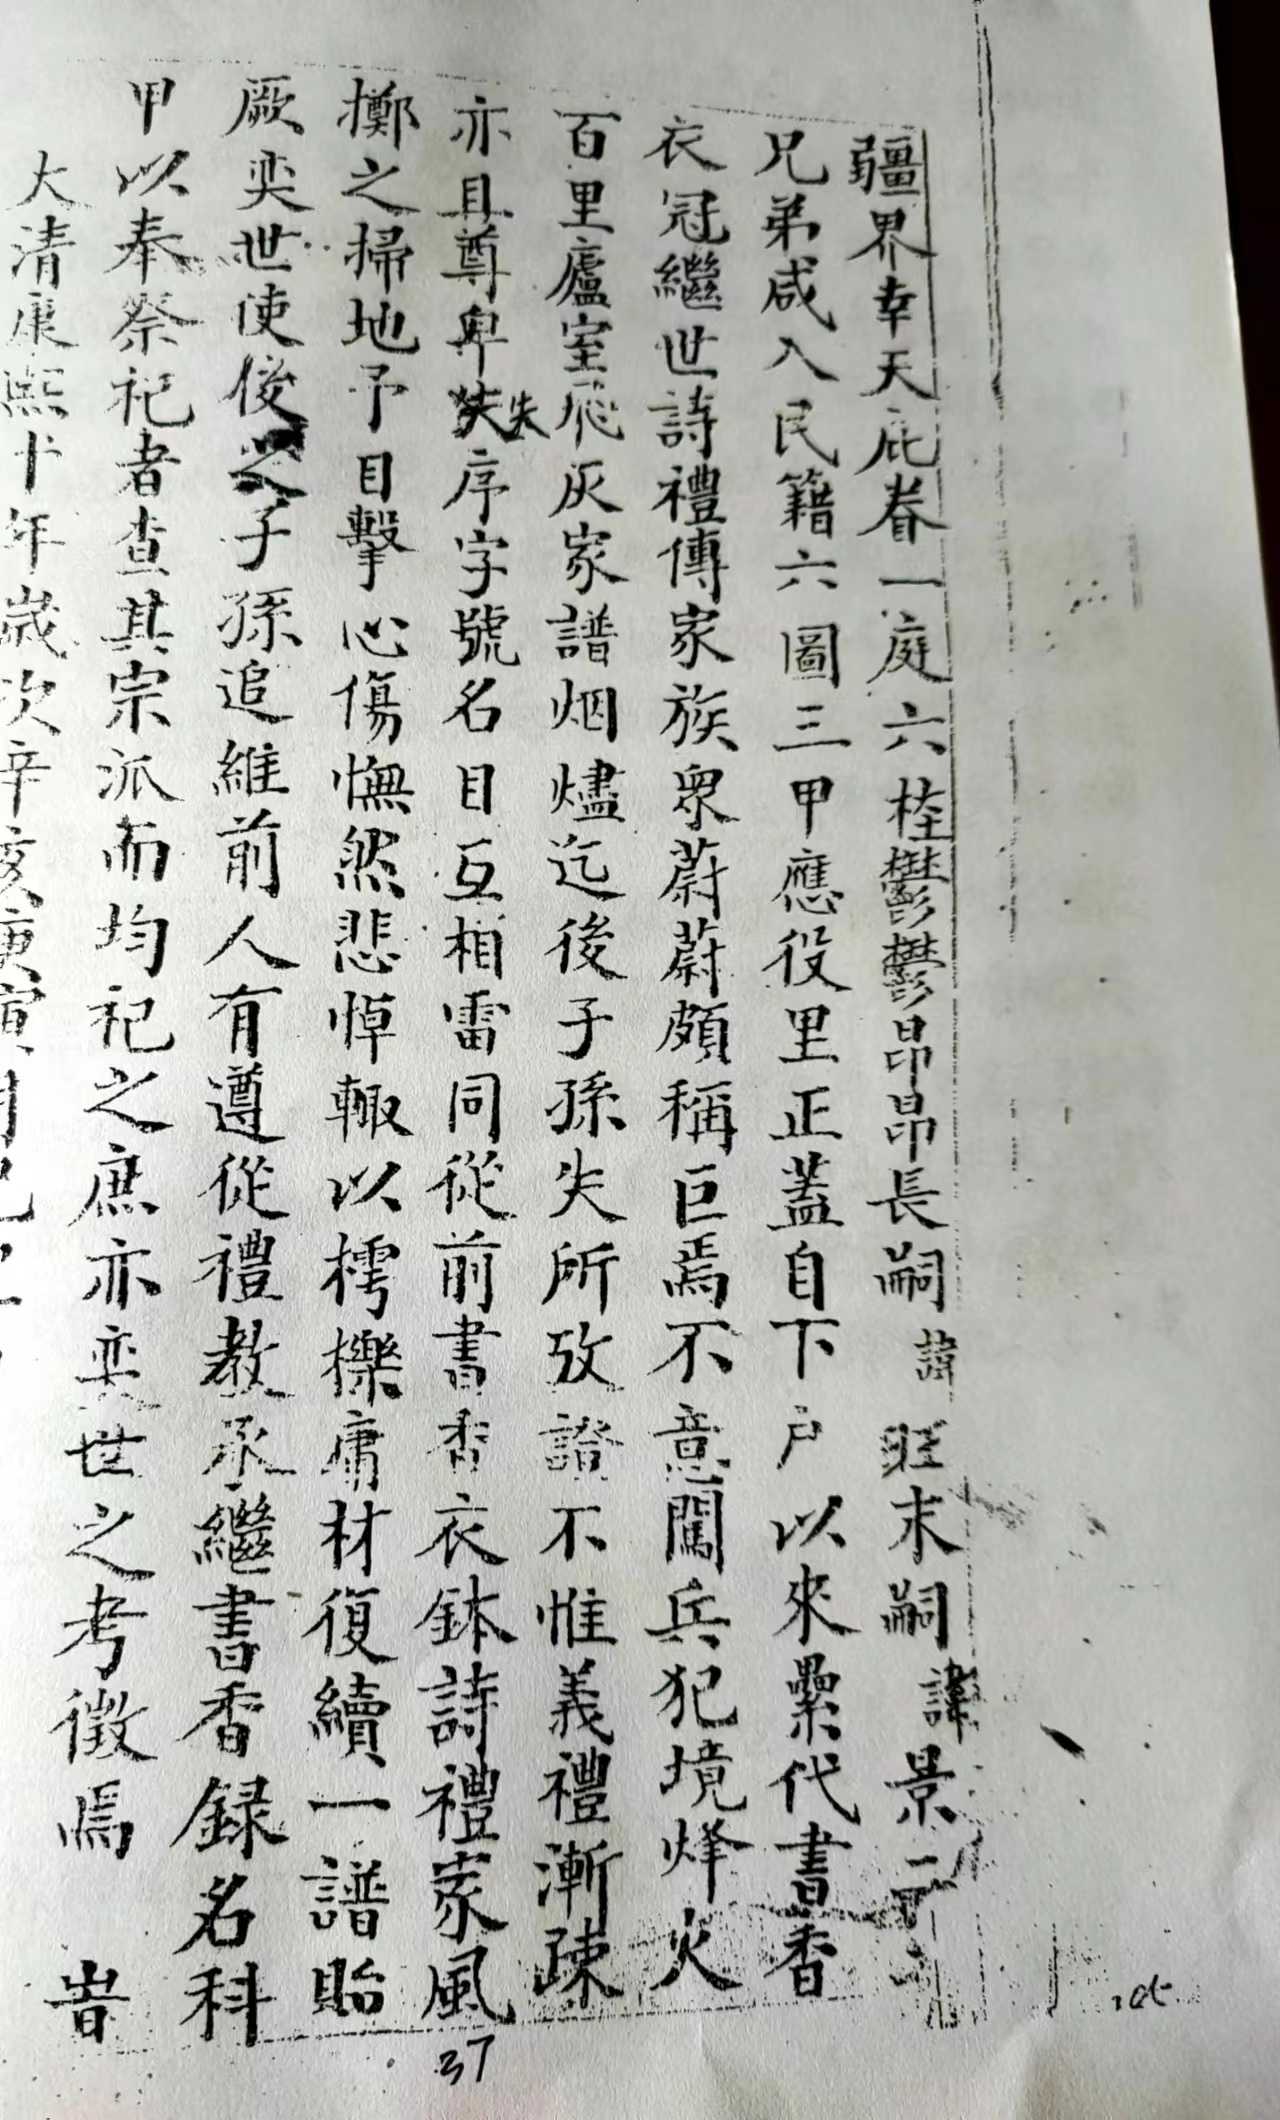 疆界幸天庇眷一庭六桂鬱鬱昂昂長嗣諱旺末嗣諱景二
兄弟咸入民籍六圖三甲應役里正蓋自下户以來纍代書香
衣冠繼世詩禮傳家族衆蔚蔚頗稱巨焉不意闖兵犯境烽火
百里廬室飛灰家譜烟燼迄後子孫失所攷證不惟義禮漸疎
亦且尊卑失序字號名目互相雷同從前書香衣鉢詩禮家風
擲之掃地予目擊心傷憮然悲悼輙以樗櫟庸材復續一譜貽
厥奕世使後之子孫追維前人有遵從禮教承繼書香録名科
甲以奉祭祀者查其宗派而均祀之庶亦奕世之考徵焉 旹
大清康熙十年歲次辛亥庚寅月
37